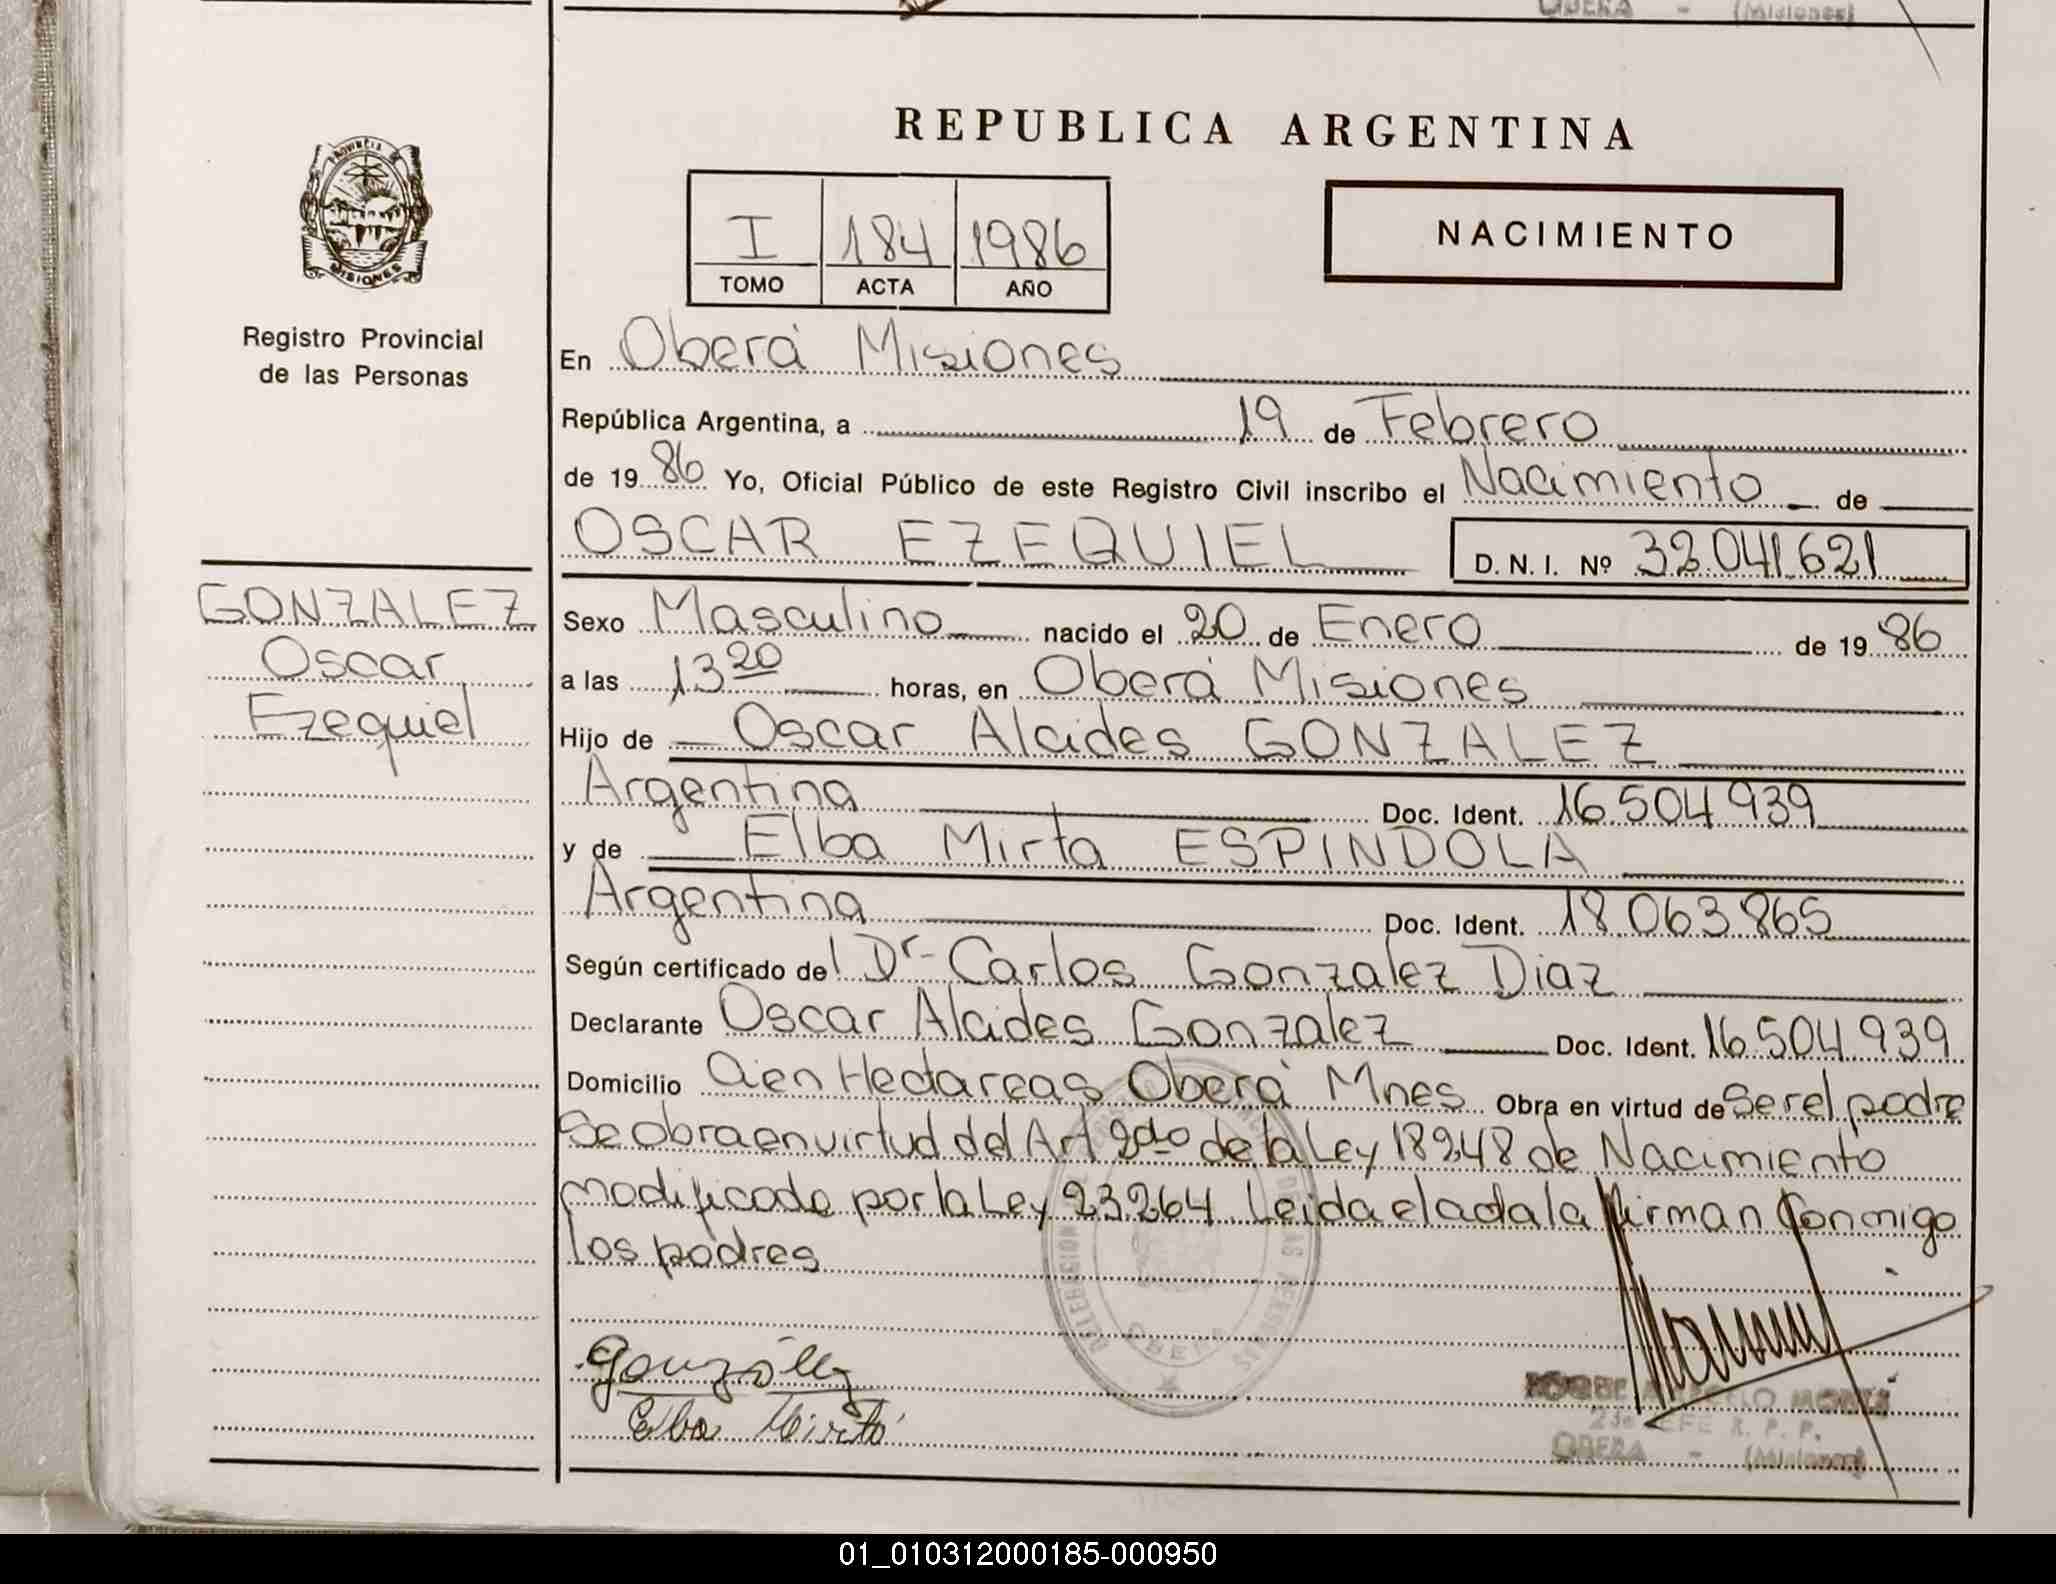 OBERA - (Misiones)
REPUBLICA ARGENTINA
PROVINCIA DE
MISIONES
Registro Provincial
de las Personas
I 184 1986
TOMO ACTA AÑO
NACIMIENTO
En Oberá Misiones
República Argentina, a 19 de Febrero
de 1986 Yo, Oficial Público de este Registro Civil inscribo el Nacimiento de
OSCAR EZEQUIEL D. N. I. Nº 32.041.621
GONZALEZ
Oscar
Ezequiel
Sexo Masculino nacido el 20 de Enero de 1986
a las 13 20 horas, en Oberá Misiones
Hijo de Oscar Alcides GONZALEZ
Argentina Doc. Ident. 16.504.939
y de Elba Mirta ESPINDOLA
Argentina Doc. Ident. 18.063.865
Según certificado del Dr. Carlos Gonzalez Diaz
Declarante Oscar Alcides Gonzalez Doc. Ident. 16.504.939
Domicilio Cien Hectareas Oberá Mnes Obra en virtud de Ser el padre
Se obra en virtud del Art 2do de la Ley 18248 de Nacimiento
modificado por la Ley 23.264 Leida el acta la firman conmigo
los padres
Gonzalez
Elba Mirta
OBERA
ROQUE
JEFE R. P. P.
OBERA - (Misiones)
01_010312000185-000950